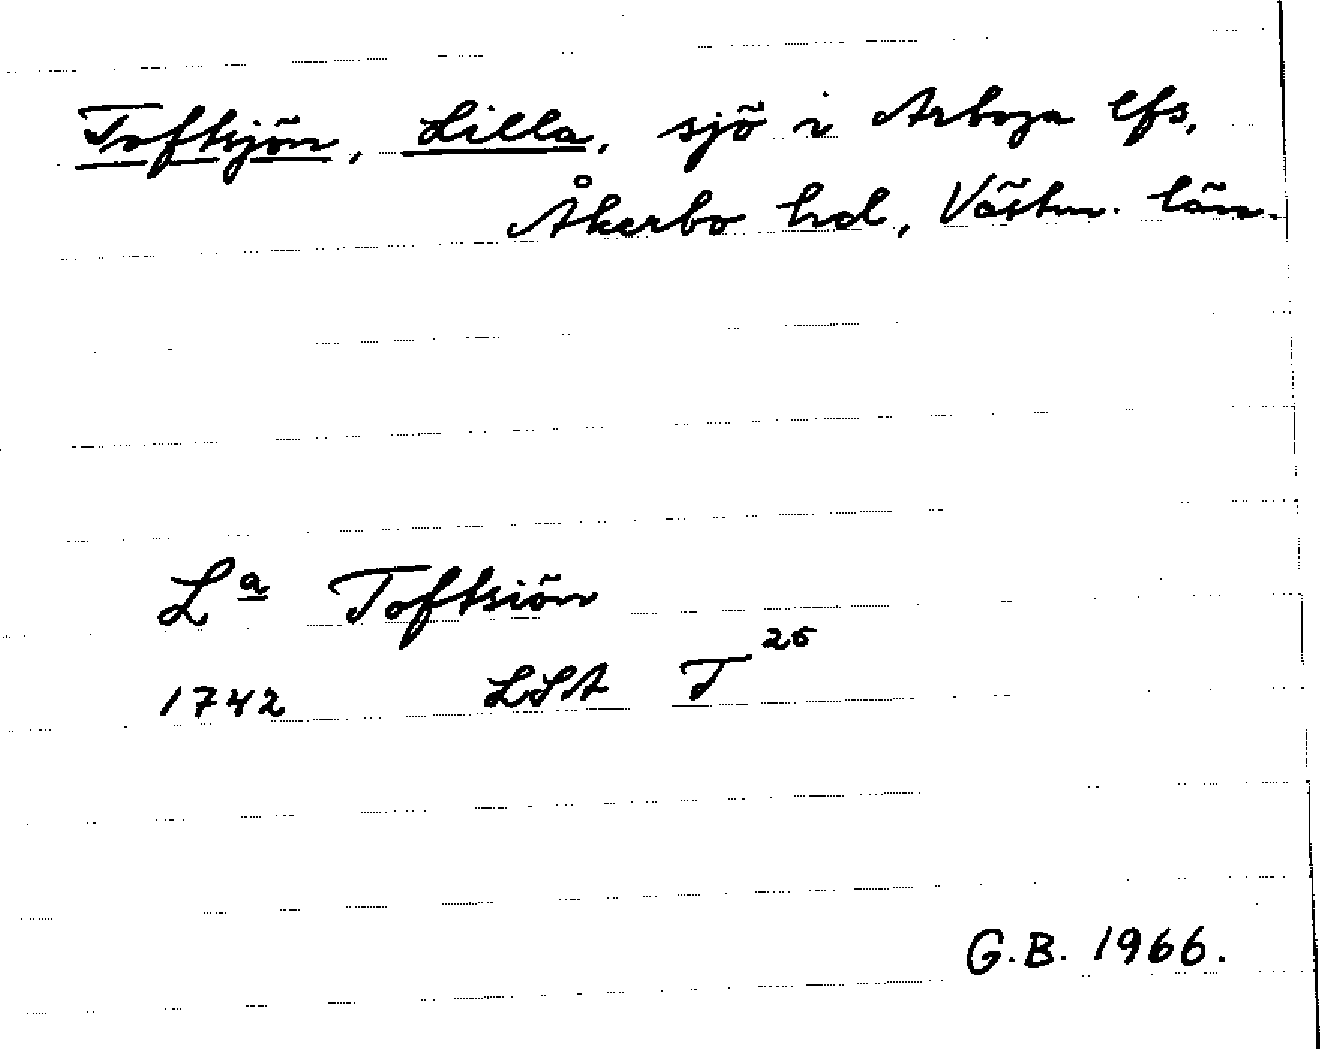 Toftsjön, Lilla, sjö i Arboga lfs,
Åkerbo hd, Västm. län.
La Toftsiön
1742 LSA T 25
G.B. 1966.